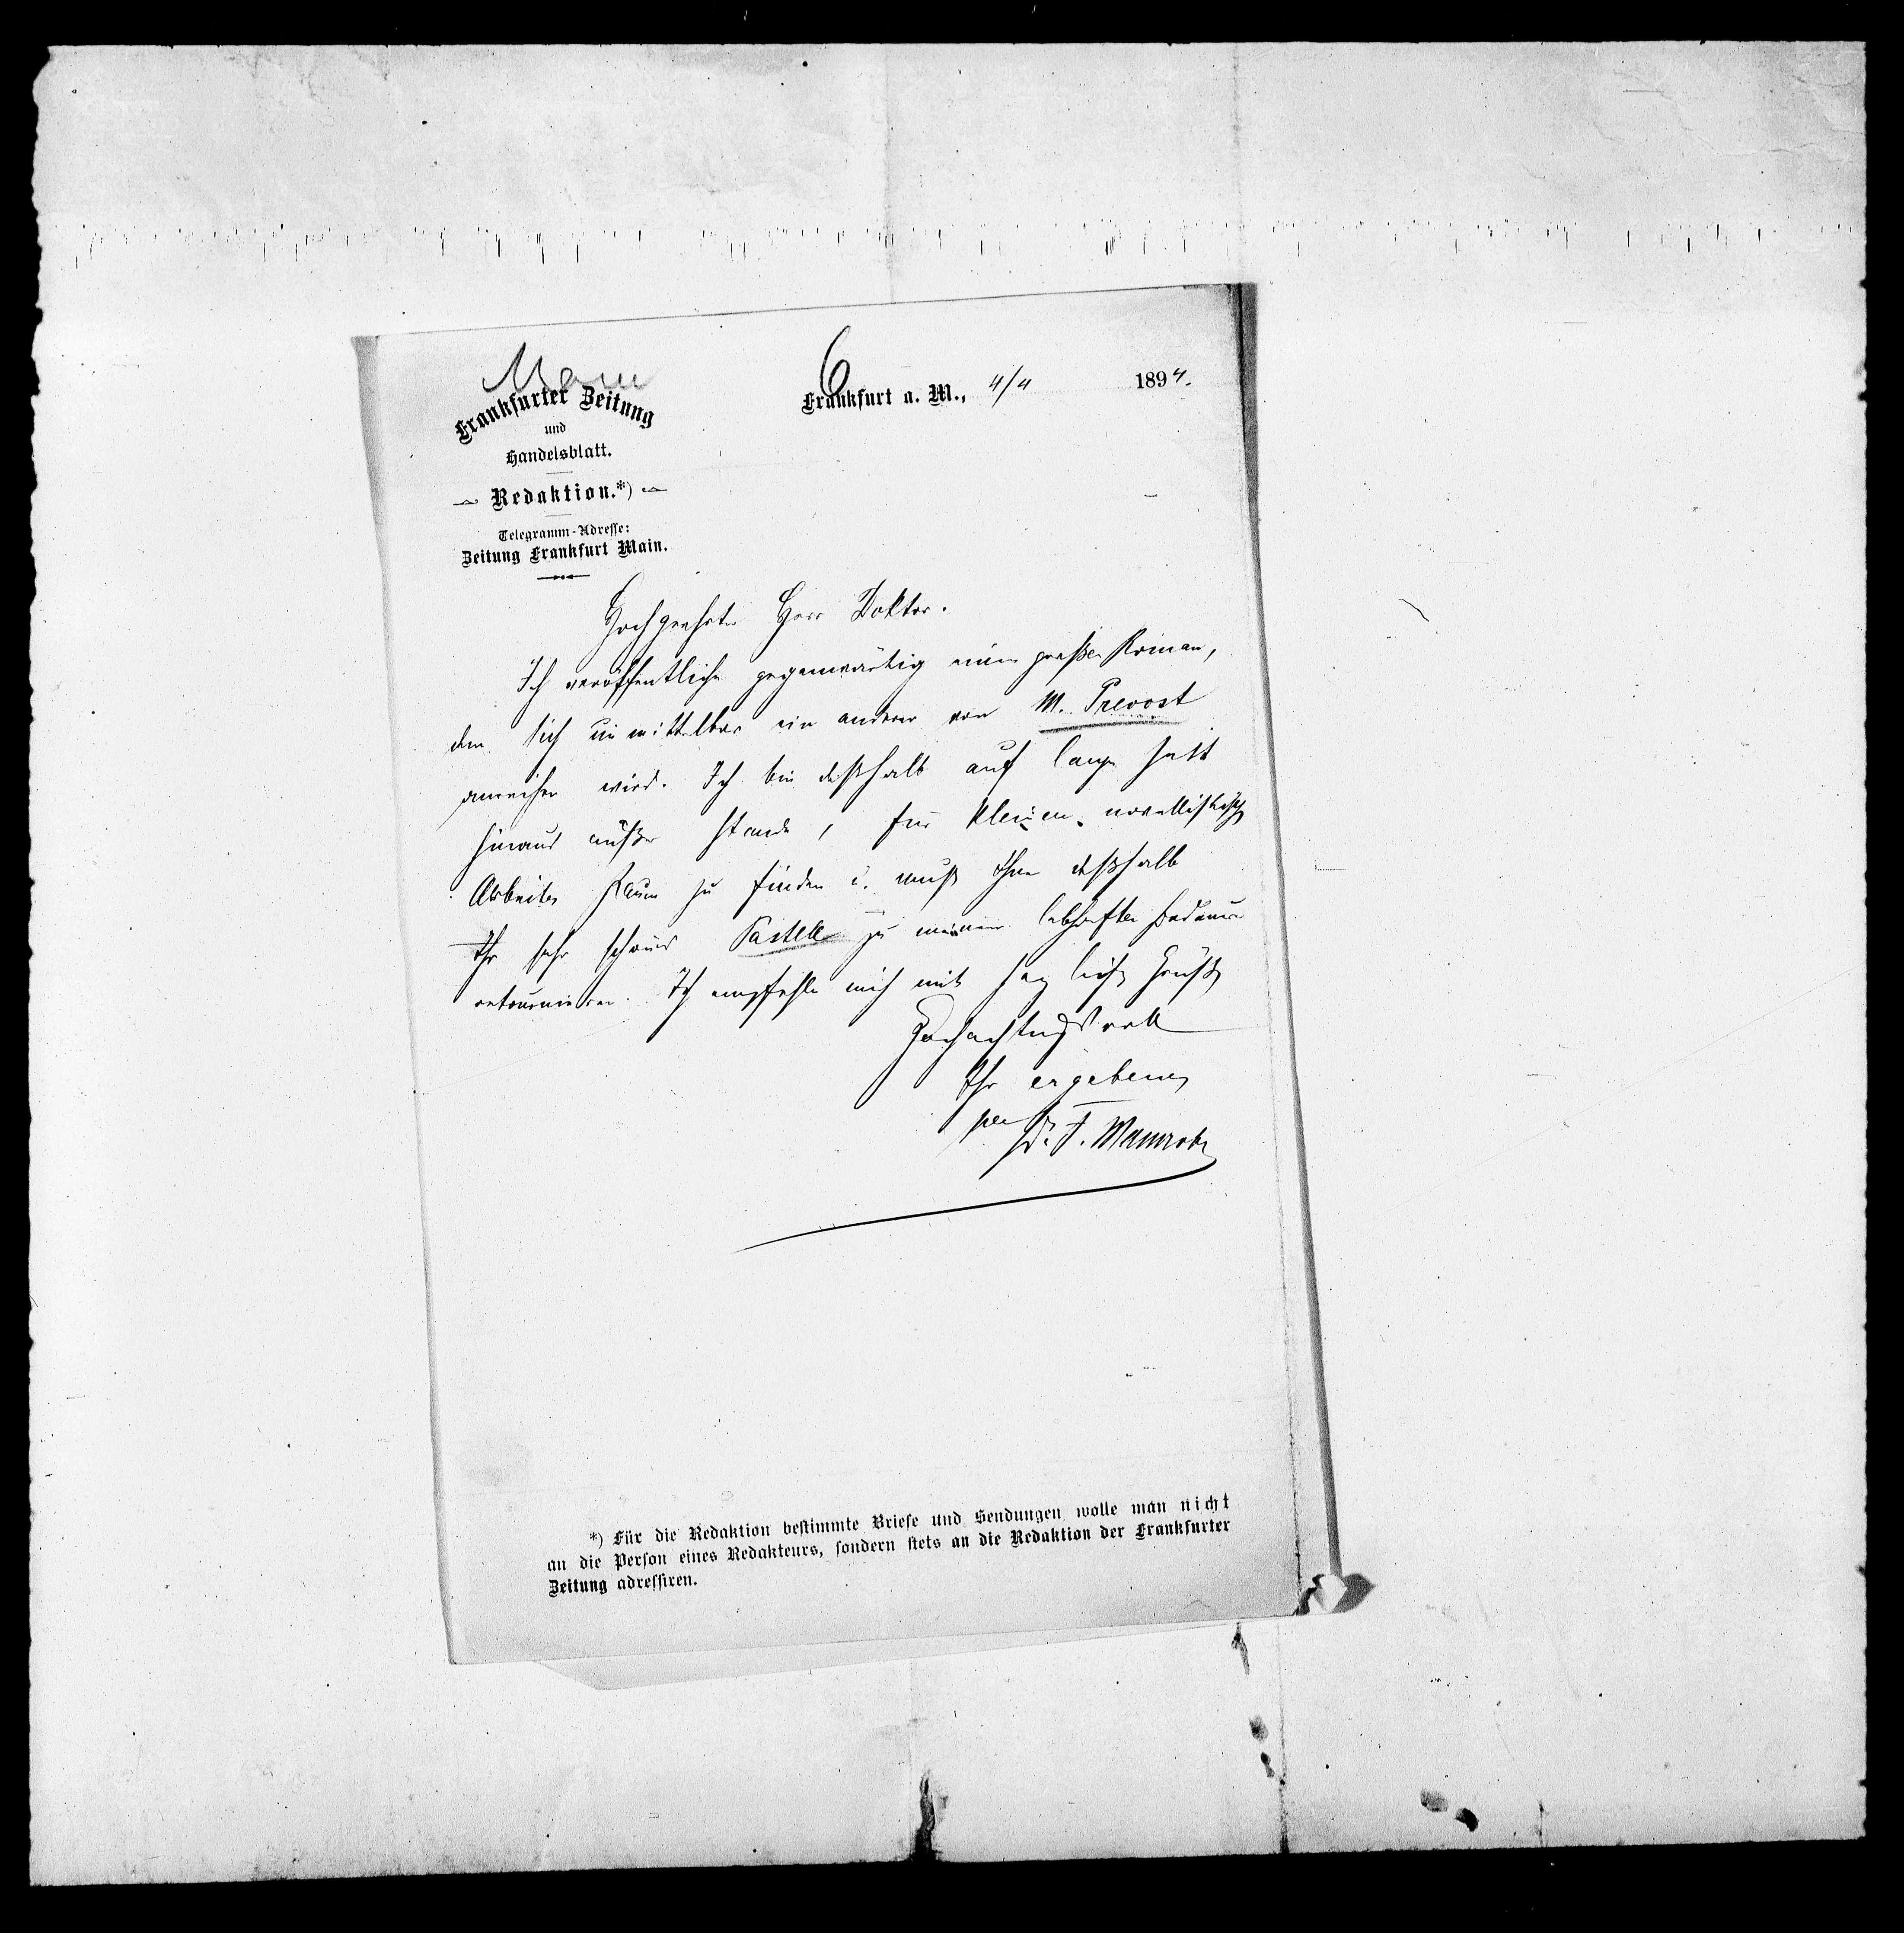 Mam
6
Frankfurter Zeitung
und
Handelsblatt.
Redaktion.*)
Telegramm-Adresse:
Zeitung Frankfurt Main.
Frankfurt a. M., 4/4 1894.
Hochgeehrter Herr Doktor.
Ich veröffentliche gegenwärtig einen großen Roman,
dem sich unmittelbar ein anderer von M. Prevost
anreihen wird. Ich bin deßhalb auf lange Zeit
hinaus außer Stande, für kleinere novellistische
Arbeiten Raum zu finden u. muß Ihnen deßhalb
Ihr sehr schönes Pastell zu meinem lebhaften Bedauern
retournieren. Ich empfehle mich mit herzlichen Grüßen
Hochachtungsvoll
Ihr ergebener
per Dr. F. Mamroth
*) Für die Redaktion bestimmte Briefe und Sendungen wolle man nicht
an die Person eines Redakteurs, sondern stets an die Redaktion der Frankfurter
Zeitung adressiren.